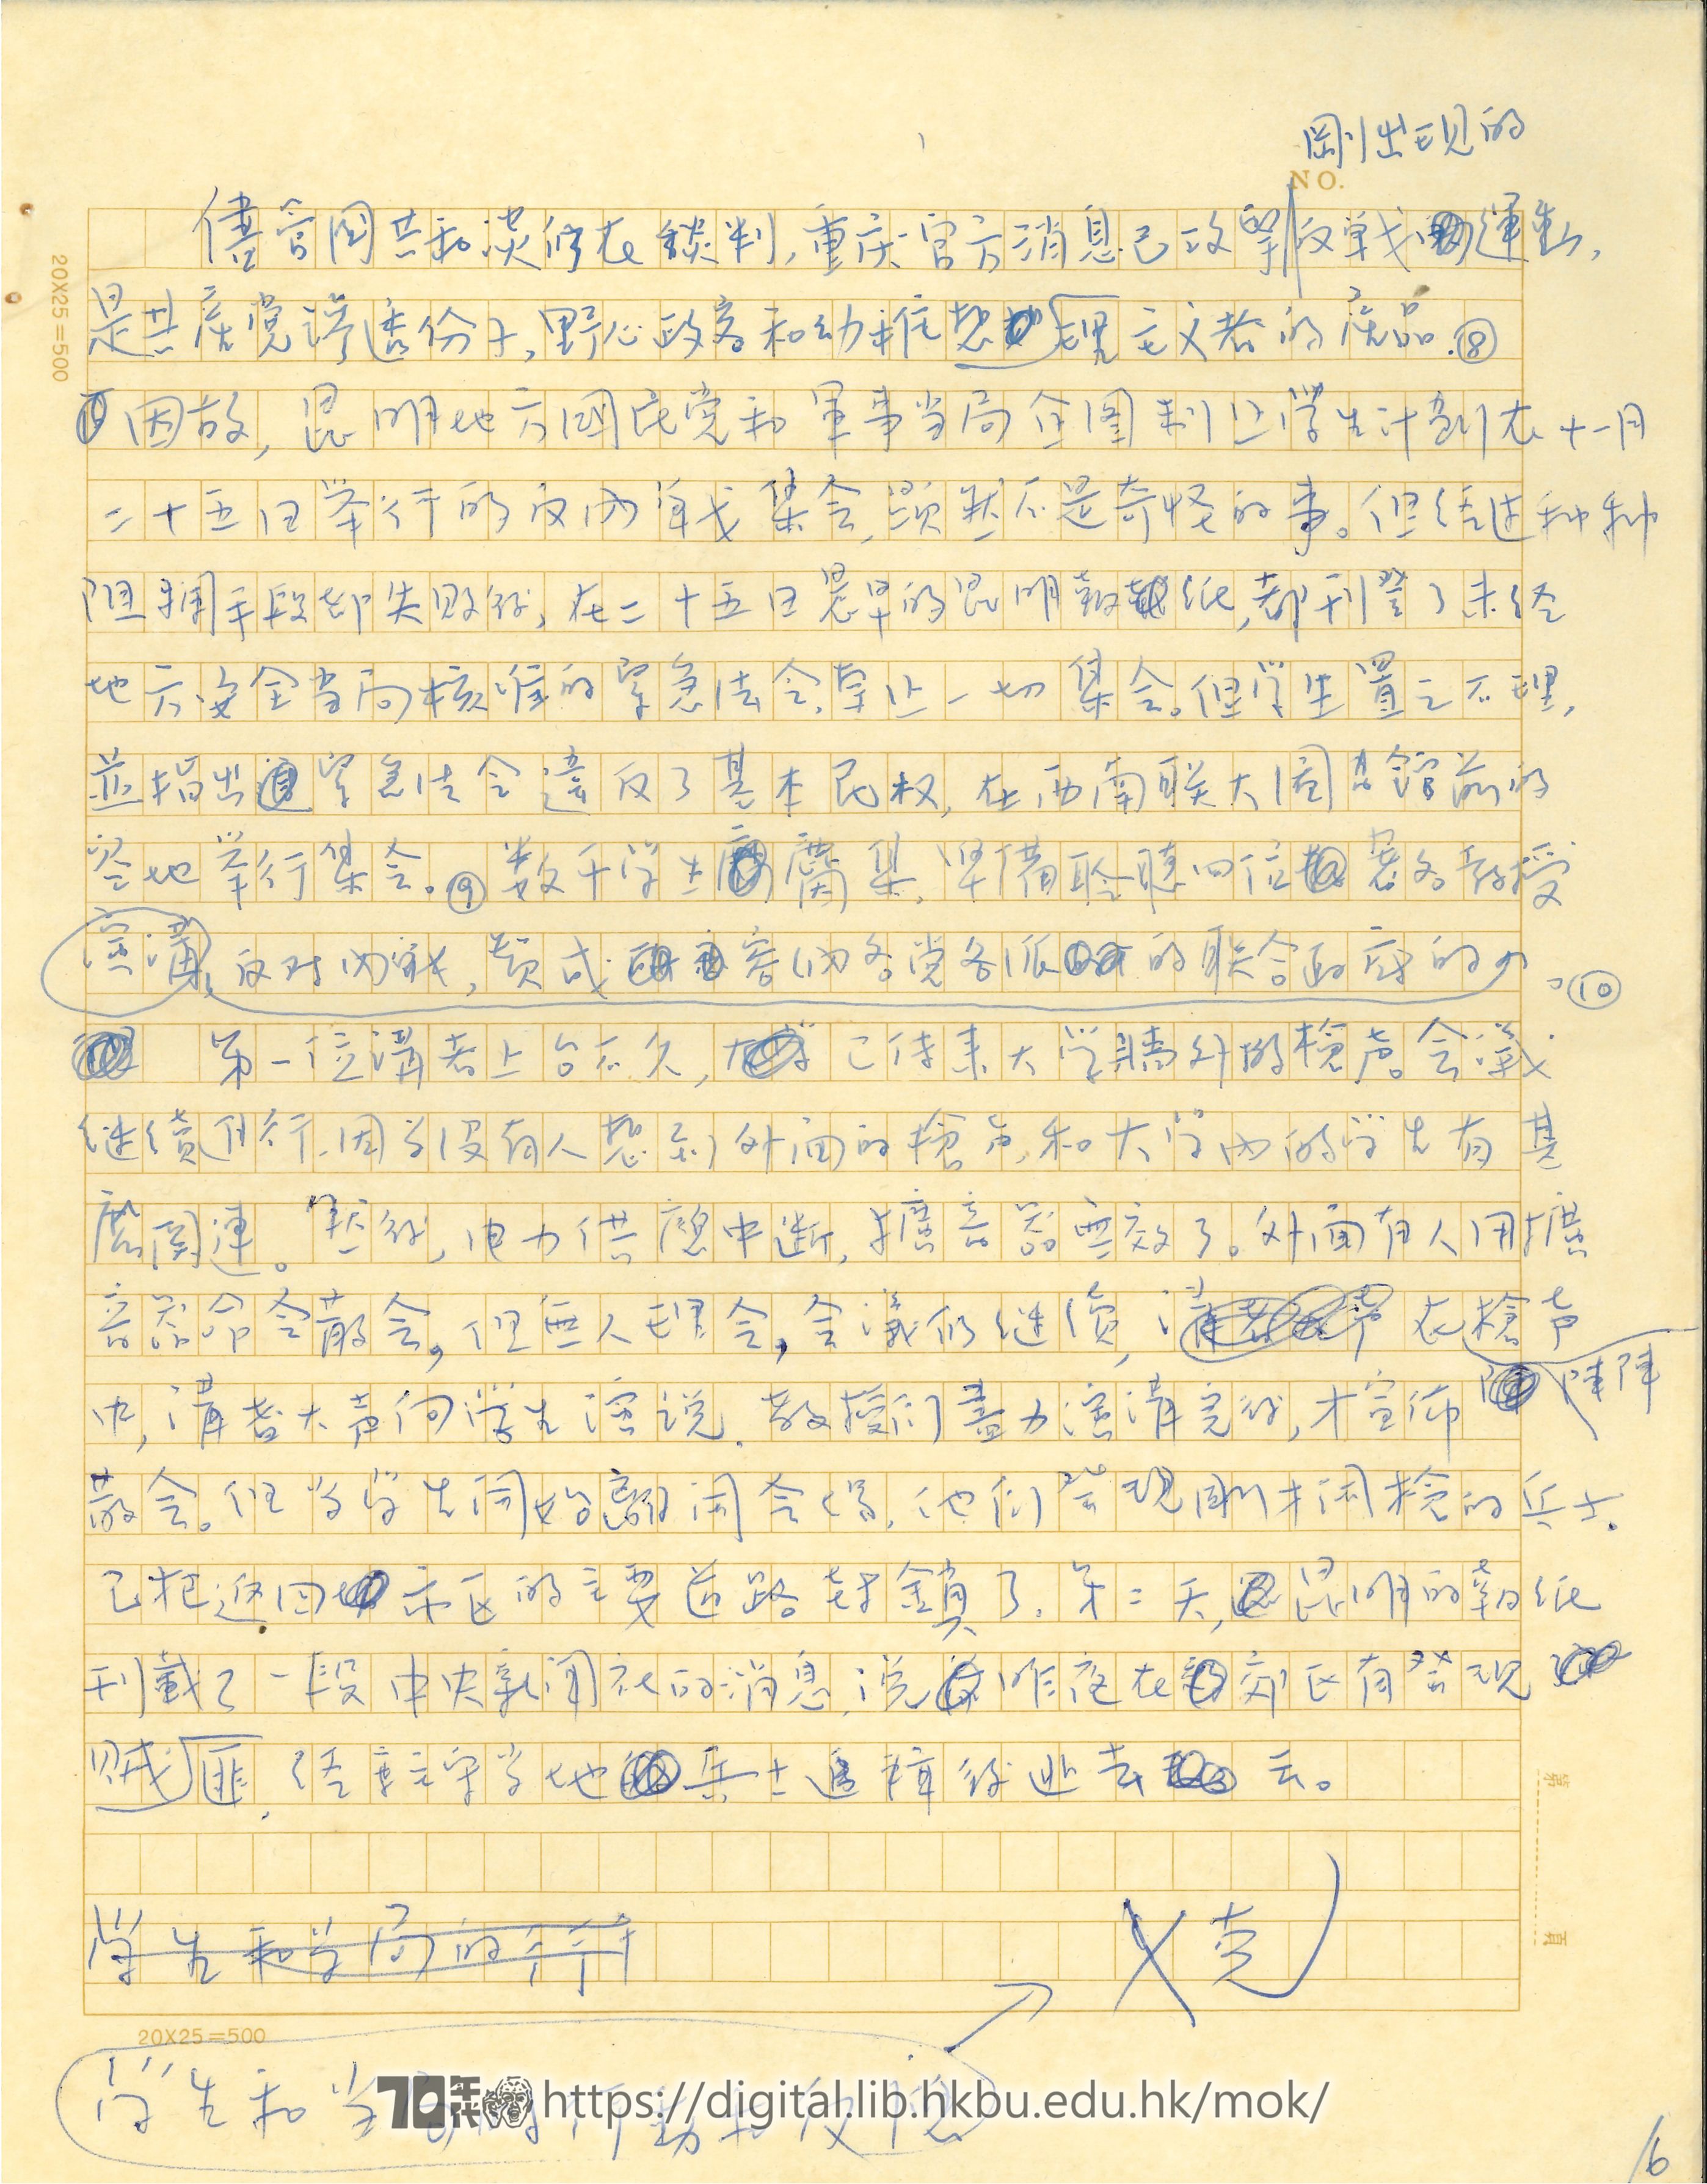 剛出現的
NO.
儘管国共和淡仍在談判,重庆官方消息已攻擊反战運動,
是共産党誘惑份子,野心政客和幼稚想理主义者的産品.⑧
因故,昆明地方國民党和軍事当局企图制止学生计劃在十一月
二十五日举行的反内战集会,显然不是奇怪的事。但经过种种
阻攔手段都失败後,在二十五日晨早的昆明報纸,都刊登了未经
地方安全当局核准的緊急法令,禁止一切集会。但学生置之不理,
並指出緊急法令違反了基本民权,在西南联大圖書館前的
空地举行集会。⑨数千学生麕集,準備聆聽四位著名教授
演講,反对内战,贊成容纳各党各派的联合政府的。⑩
第一位講者上台不久,已传来大学牆外的槍声。会議
继续進行,因为没有人想到外面的槍声,和大学内的学生有甚
麽関連。然後,电力供應中断,擴音器無效了。外面有人用擴
音器命令散会,但無人理会,会議仍继续,在槍声
陣陣
中,講者大声向学生演说.教授们盡力演講完後,才宣佈
散会。但当学生開始離開会場,他们發現剛才開槍的兵士.
已把返回市区的主要道路封鎖了.第二天,昆明的報纸
刊載了一段中央新闻社的消息,说昨夜在郊区有發現
贼匪,经駐守当地兵士追緝後逃去云。
学生和当局的行
克
20X25=500
20X25=500
学生和当
70年代 https://digital.lib.hkbu.edu.hk/mok/
6